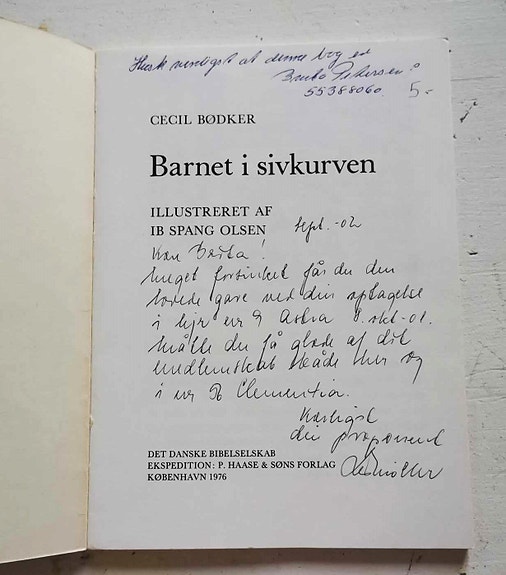 Husk venligst at denne bog er
Birita Petersen's
55388060. 5.-
CECIL BØDKER
Barnet i sivkurven
ILLUSTRERET AF
IB SPANG OLSEN
Sept.-02
Kære Birita!
Meget forsinket får du den
lovede gave ved din optagelse
i lejr nr 9 Astra 8. okt-01.
Måtte du få glæde af dit
medlemskab både her og
i nr 96 Clementia.
Kærligst
din proponent
DET DANSKE BIBELSELSKAB
EKSPEDITION: P. HAASE & SØNS FORLAG
KØBENHAVN 1976